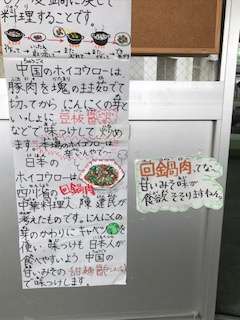 料理することです。
中国のホイコウローは
豚肉を塊の主茹でて
切ってから にんにくの芽と
いっしょに 豆板醤
などで味つけして 炒め
ます。本場のホイコウローは
辛いんやで〜
日本の
ホイコウローは
回鍋肉
四川省の
中華料理人 陳 建民が
考えたものです。にんにくの
芽のかわりに キャベツ を
使い 味つけも 日本人が
食べやすいよう 中国の
甘いみその 甜麺醤
で味つけします。
回鍋肉ってな〜
甘いみそ味が
食欲 そそりますねん。